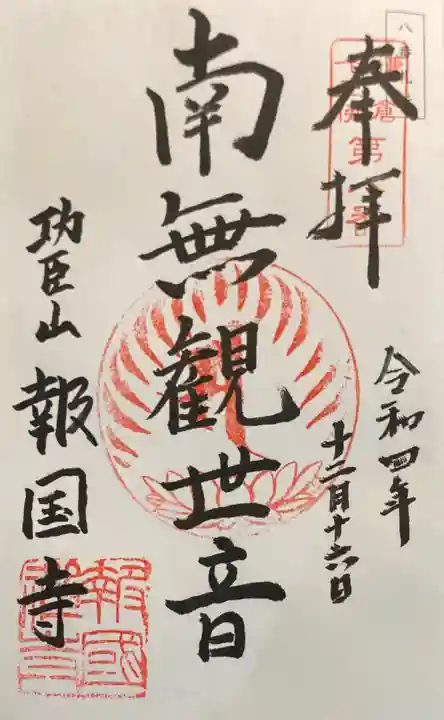 奉拝
令和四年
十二月十六日
南無観世音
功臣山 報国寺